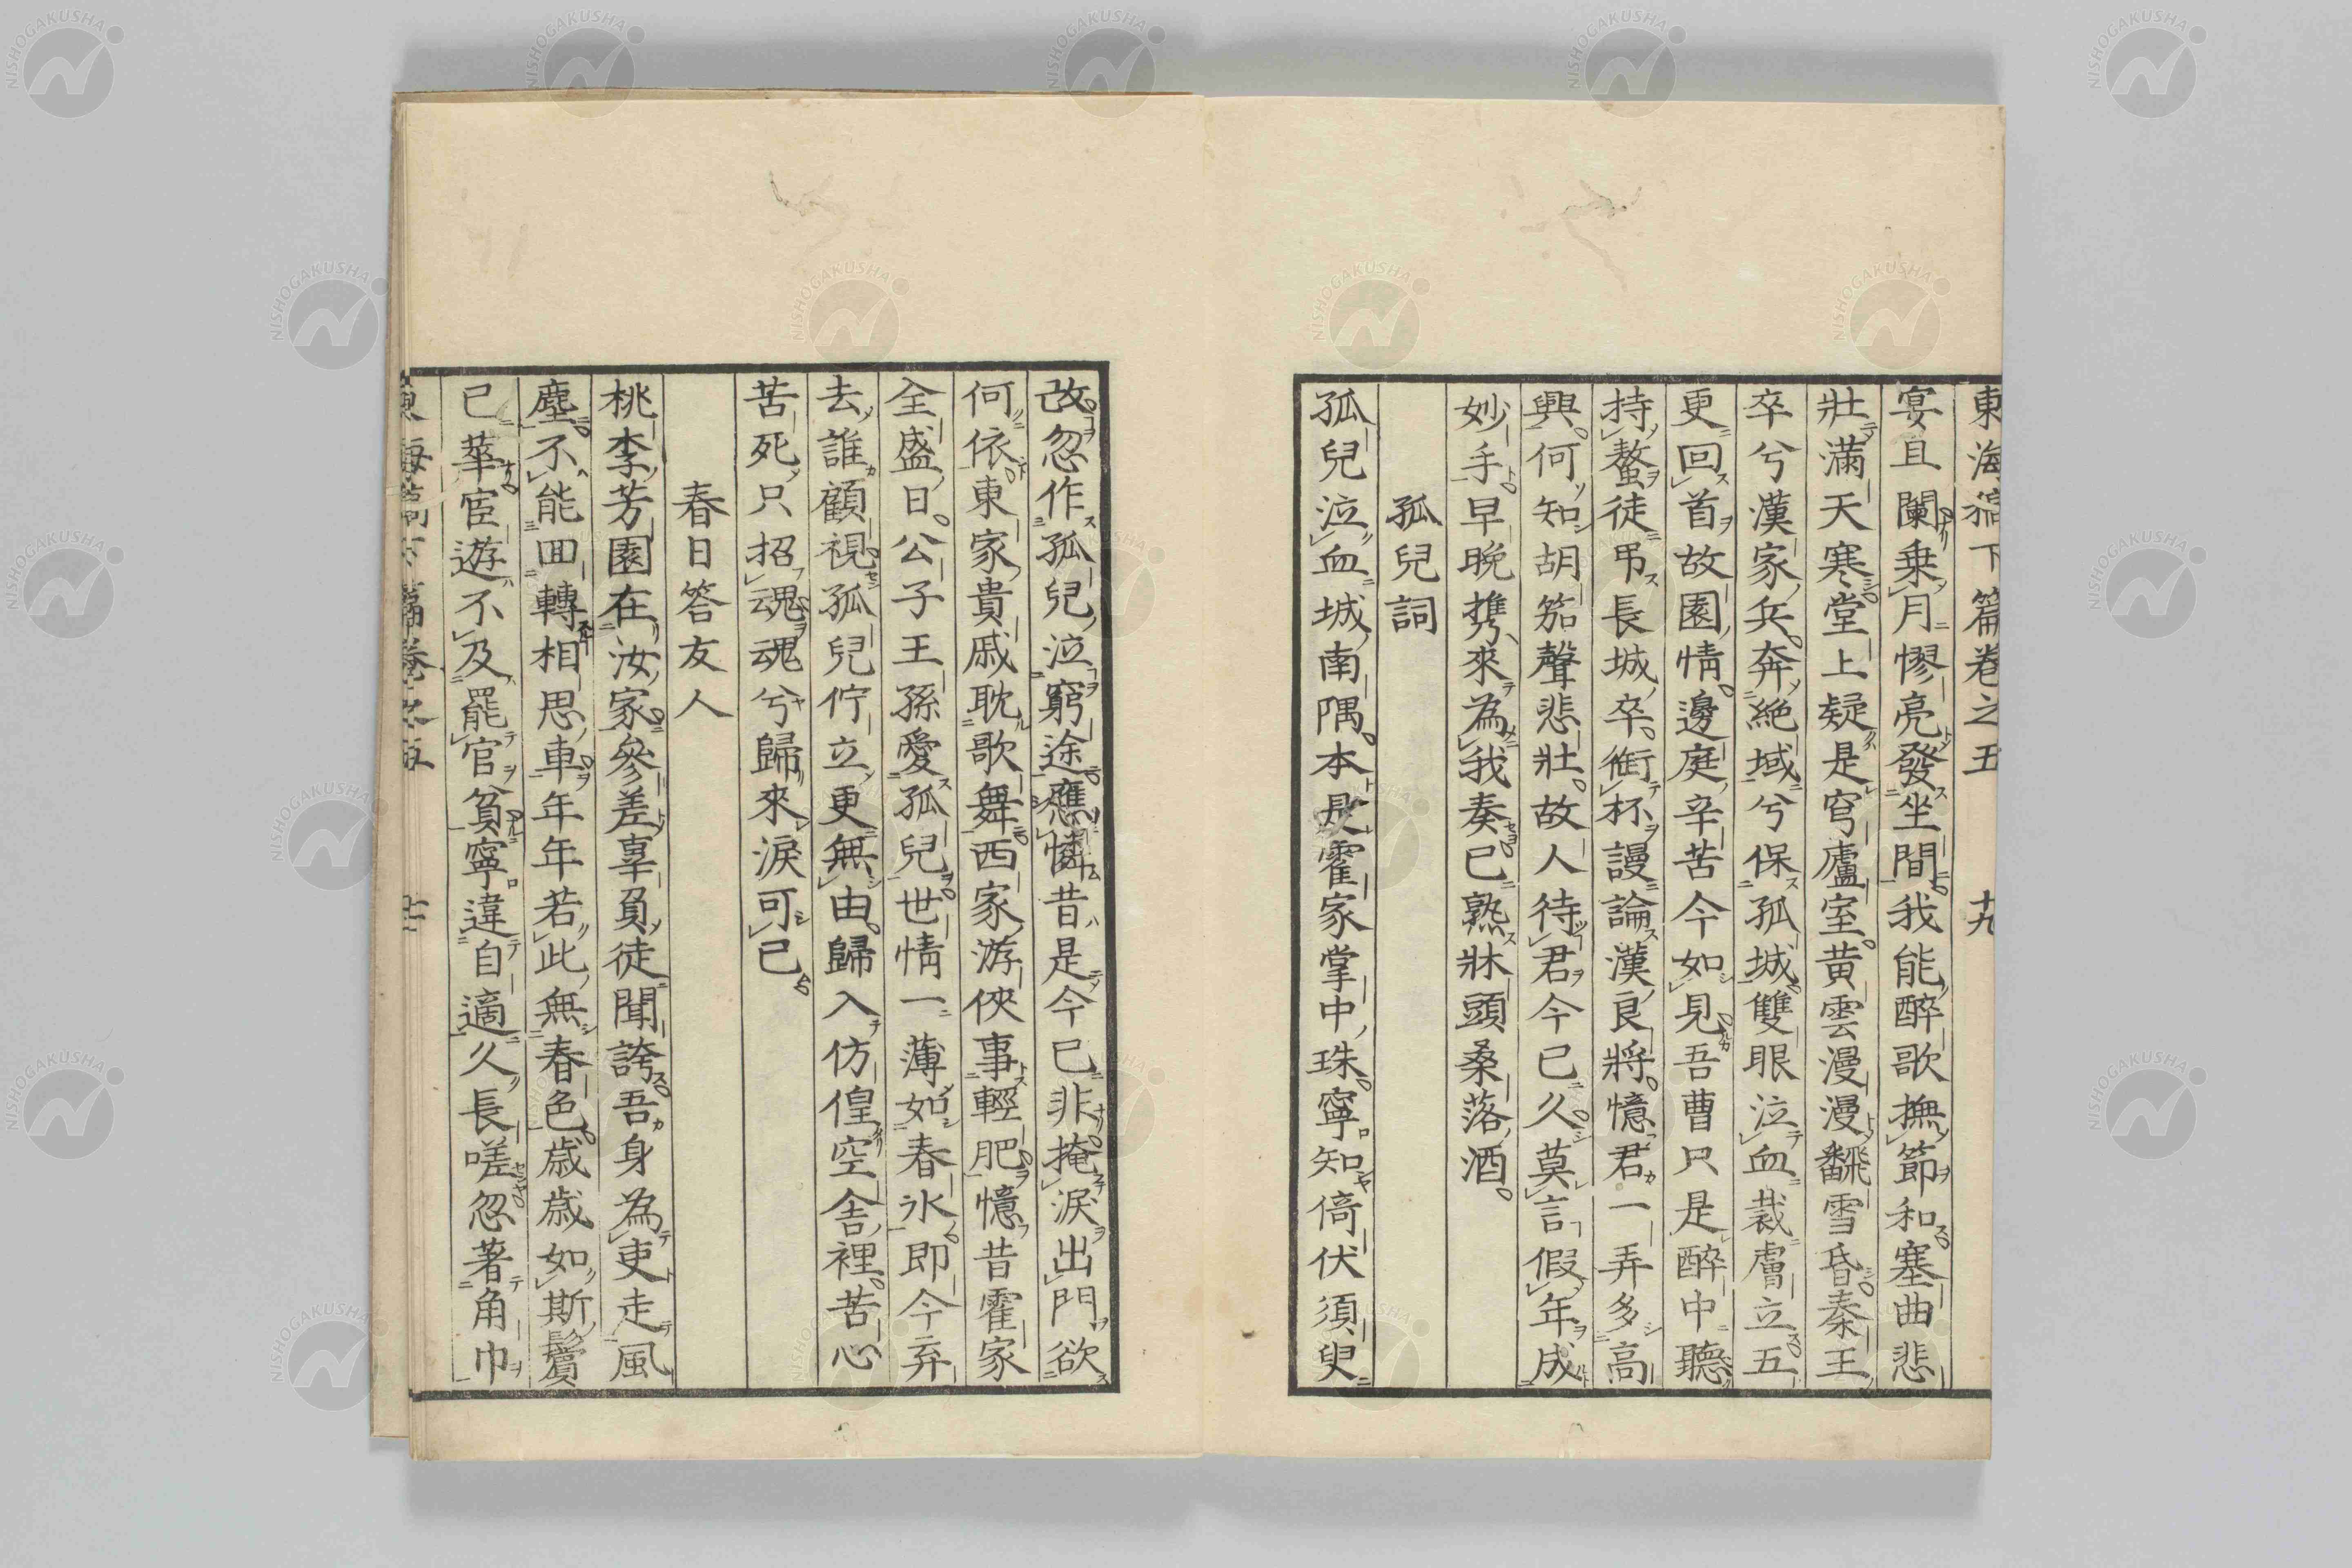 東海稿下篇卷之五 十九
宴且闌乗月憀亮發坐間我能醉歌撫節和塞曲悲
壯滿天寒堂上疑是穹廬室黄雲漫漫飜雪昏秦王
卒兮漢家兵奔絶域兮保孤城雙眼泣血裁膚立五
更回首故園情邊庭辛苦今如見吾曹只是醉中聽
持螯徒弔長城卒銜杯謾論漢良將憶君一弄多高
興何知胡笳聲悲壯故人待君今已久莫言假年成
妙手早晩携來為我奏已熟牀頭桑落酒
孤兒詞
孤兒泣血城南隅本是霍家掌中珠寧知倚伏須臾
故忽作孤兒泣窮途應憐昔是今已非掩涙出門欲
何依東家貴戚耽歌舞西家游俠事輕肥憶昔霍家
全盛日公子王孫愛孤兒世情一薄如春氷即今弃
去誰顧視孤兒佇立更無由歸入仿偟空舎裡苦心
苦死只招魂魂兮歸來淚可已
春日答友人
桃李芳園在汝家參差辜負徒聞誇吾身為吏走風
塵不能回轉相思車年年若此無春色歳歳如斯鬢
已華宦遊不及罷官貧寧違自適久長嗟忽著角巾